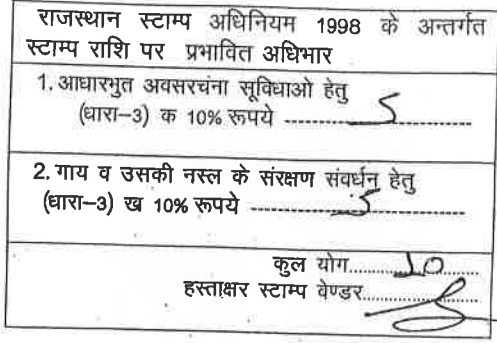 राजस्थान स्टाम्प अधिनियम 1998 के अन्तर्गत
स्टाम्प राशि पर प्रभावित अधिभार
1. आधारभुत अवसरचंना सूविधाओ हेतु
(धारा–3) क 10% रूपये ----------5----------
2. गाय व उसकी नस्ल के संरक्षण संवर्धन हेतु
(धारा–3) ख 10% रूपये ----------5----------
कुल योग.......10.......
हस्ताक्षर स्टाम्प वेण्डर..............